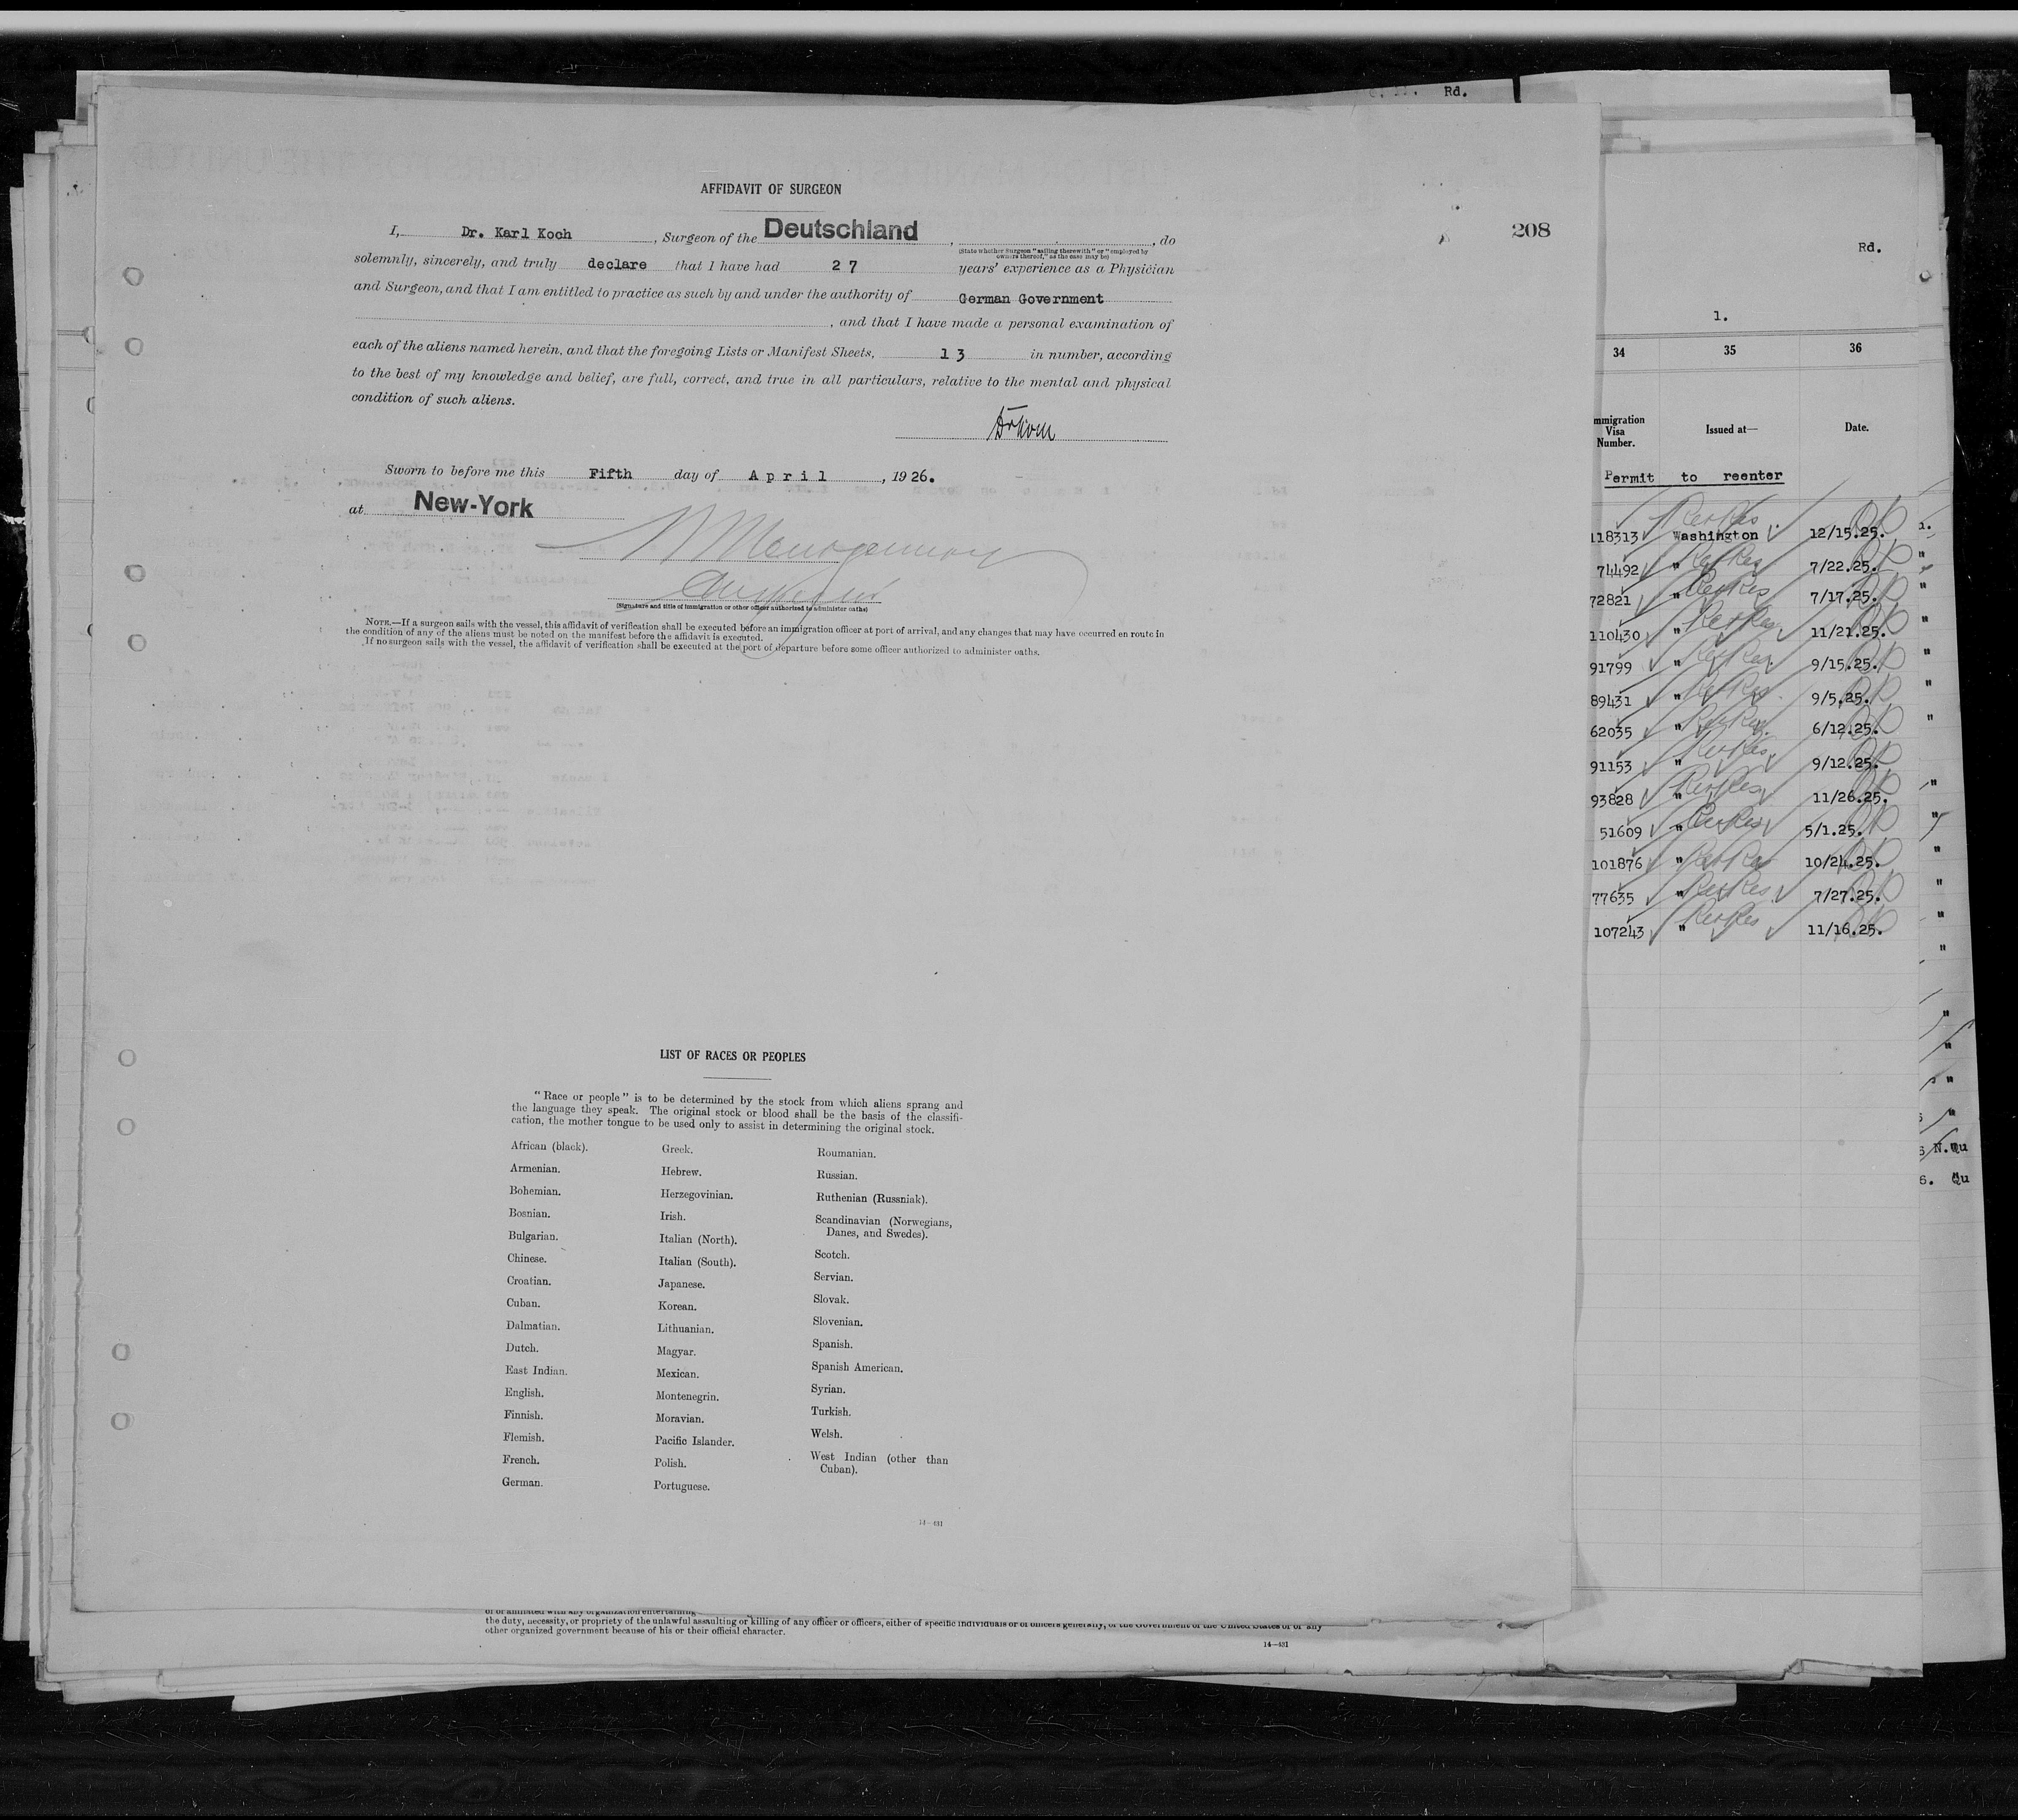 Rd.
AFFIDAVIT OF SURGEON
208
I, Dr. Karl Koch, Surgeon of the Deutschland, , do
(State whether Surgeon "sailing therewith" or "employed by owners thereof," as the case may be)
solemnly, sincerely, and truly declare that I have had 27 years' experience as a Physician
and Surgeon, and that I am entitled to practice as such by and under the authority of German Government
, and that I have made a personal examination of
each of the aliens named herein, and that the foregoing Lists or Manifest Sheets, 13 in number, according
to the best of my knowledge and belief, are full, correct, and true in all particulars, relative to the mental and physical
condition of such aliens.
Sworn to before me this Fifth day of April, 1926.
at New-York
(Signature and title of immigration or other officer authorized to administer oaths)
NOTE.—If a surgeon sails with the vessel, this affidavit of verification shall be executed before an immigration officer at port of arrival, and any changes that may have occurred en route in
the condition of any of the aliens must be noted on the manifest before the affidavit is executed.
If no surgeon sails with the vessel, the affidavit of verification shall be executed at the port of departure before some officer authorized to administer oaths.
LIST OF RACES OR PEOPLES
"Race or people" is to be determined by the stock from which aliens sprang and
the language they speak. The original stock or blood shall be the basis of the classifi-
cation, the mother tongue to be used only to assist in determining the original stock.
African (black).
Armenian.
Bohemian.
Bosnian.
Bulgarian.
Chinese.
Croatian.
Cuban.
Dalmatian.
Dutch.
East Indian.
English.
Finnish.
Flemish.
French.
German.
Greek.
Hebrew.
Herzegovinian.
Irish.
Italian (North).
Italian (South).
Japanese.
Korean.
Lithuanian.
Magyar.
Mexican.
Montenegrin.
Moravian.
Pacific Islander.
Polish.
Portuguese.
Roumanian.
Russian.
Ruthenian (Russniak).
Scandinavian (Norwegians,
Danes, and Swedes).
Scotch.
Servian.
Slovak.
Slovenian.
Spanish.
Spanish American.
Syrian.
Turkish.
Welsh.
West Indian (other than
Cuban).
the duty, necessity, or propriety of the unlawful assaulting or killing of any officer or officers, either of specific individuals or of officers generally, of the Government of the United States or of any
other organized government because of his or their official character.
14—431
Rd.
1.
34 35 36
mmigration
Visa
Number.
Issued at—
Date.
Permit to reenter
118313 Washington 12/15.25.
74492 " 7/22.25.
72821 " 7/17.25.
110430 " 11/21.25.
91799 " 9/15.25.
89431 " 9/5.25.
62035 " 6/12.25.
91153 " 9/12.25.
93828 " 11/26.25.
51609 " 5/1.25.
101876 " 10/24.25.
77635 " 7/27.25.
107243 " 11/16.25.
N.Qu
6. Qu